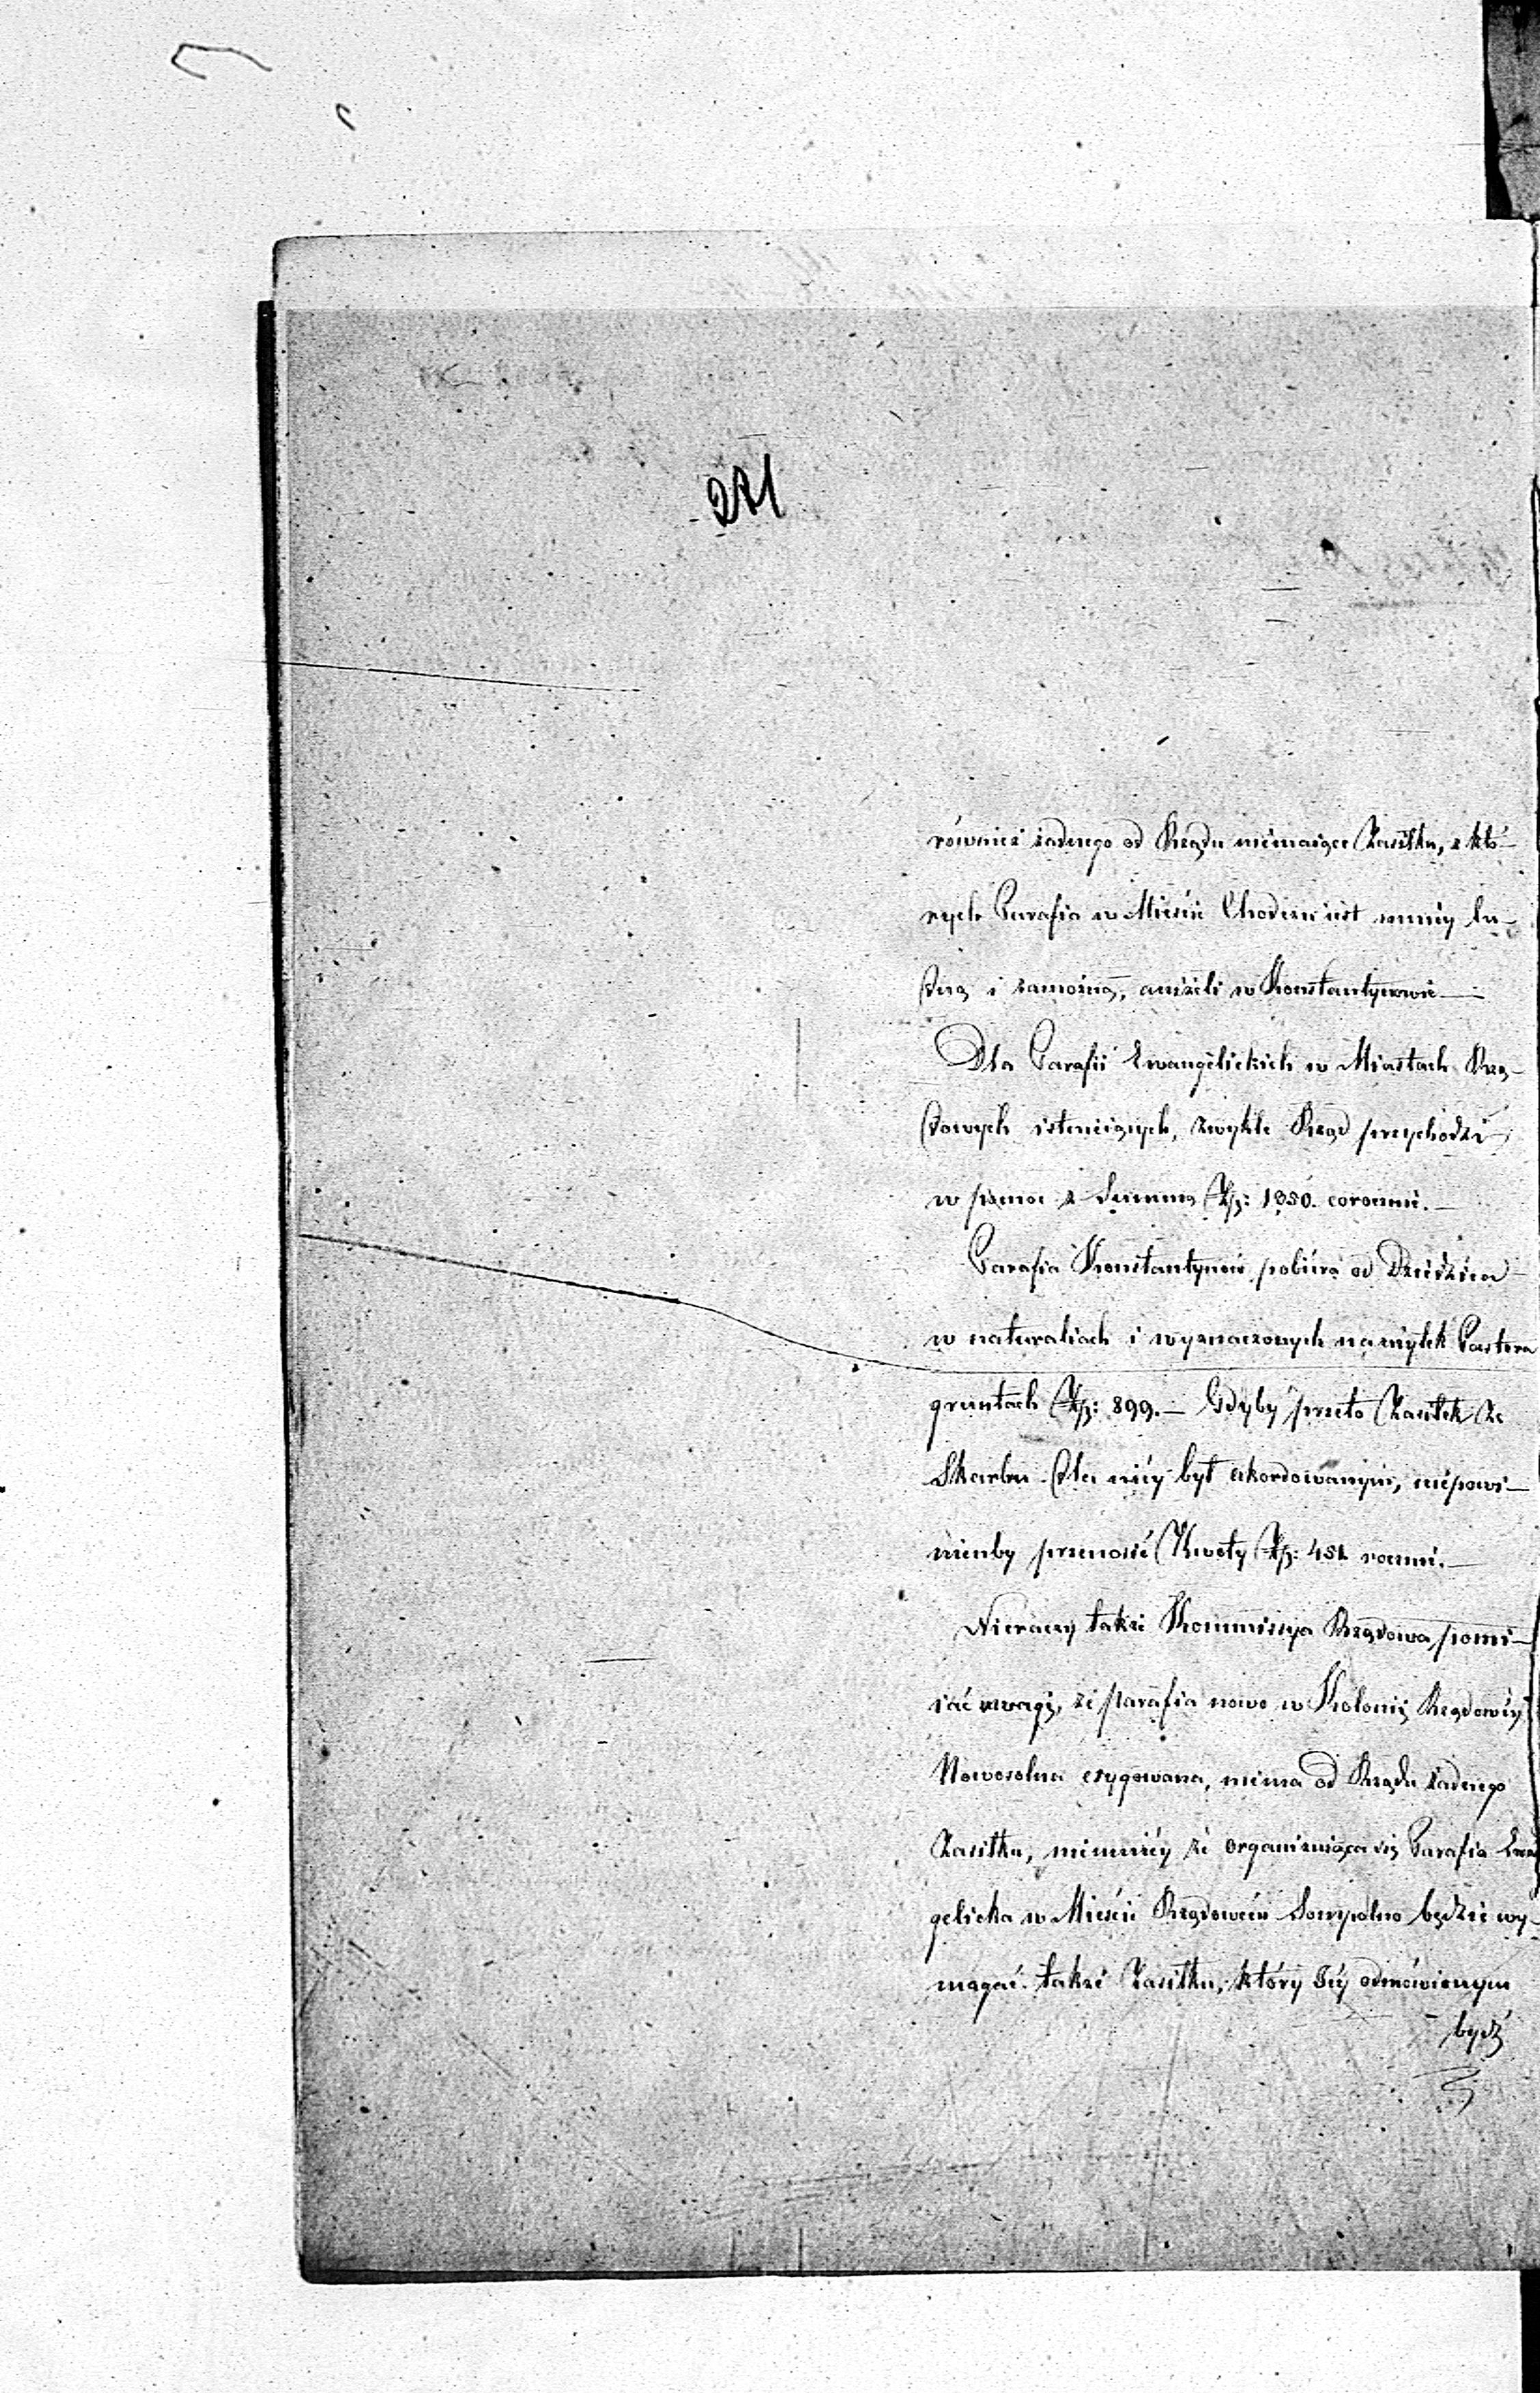 271
również żadnego od Rządu niemaiące Zasiłku, z któ-
rych Parafia w Mieście Chodcz iest mniéy lu-
dną i zamożną, aniżeli w Konstantynowie —
Dla Parafii Ewangelickich w Miastach Rzą-
dowych istnieiących, zwykle Rząd przychodzi
w pomoc z Summą Złp: 1350. corocznie. —
Parafia Konstantynów pobiera od Dziedzica
w naturaliach i wyznaczonych na użytek Pastora
gruntach Złp: 899. — Gdyby przeto Zasiłek ze
Skarbu dla niéy był akordowanym, niepowi-
nienby przenosić Kwoty Złp: 451 rocznie. —
Nieraczy także Kommissya Rządowa pomi-
iać uwagi, że parafia nowo w Kolonii Rządowéy
Nowosolna erygowana, niema od Rządu żadnego
Zasiłku, niemniéy że organizuiąca się Parafia Ewan
gelicka w Mieście Rządowém Sompolno będzie wy-
magać także Zasiłku, który Jéy odmówionym
bydź